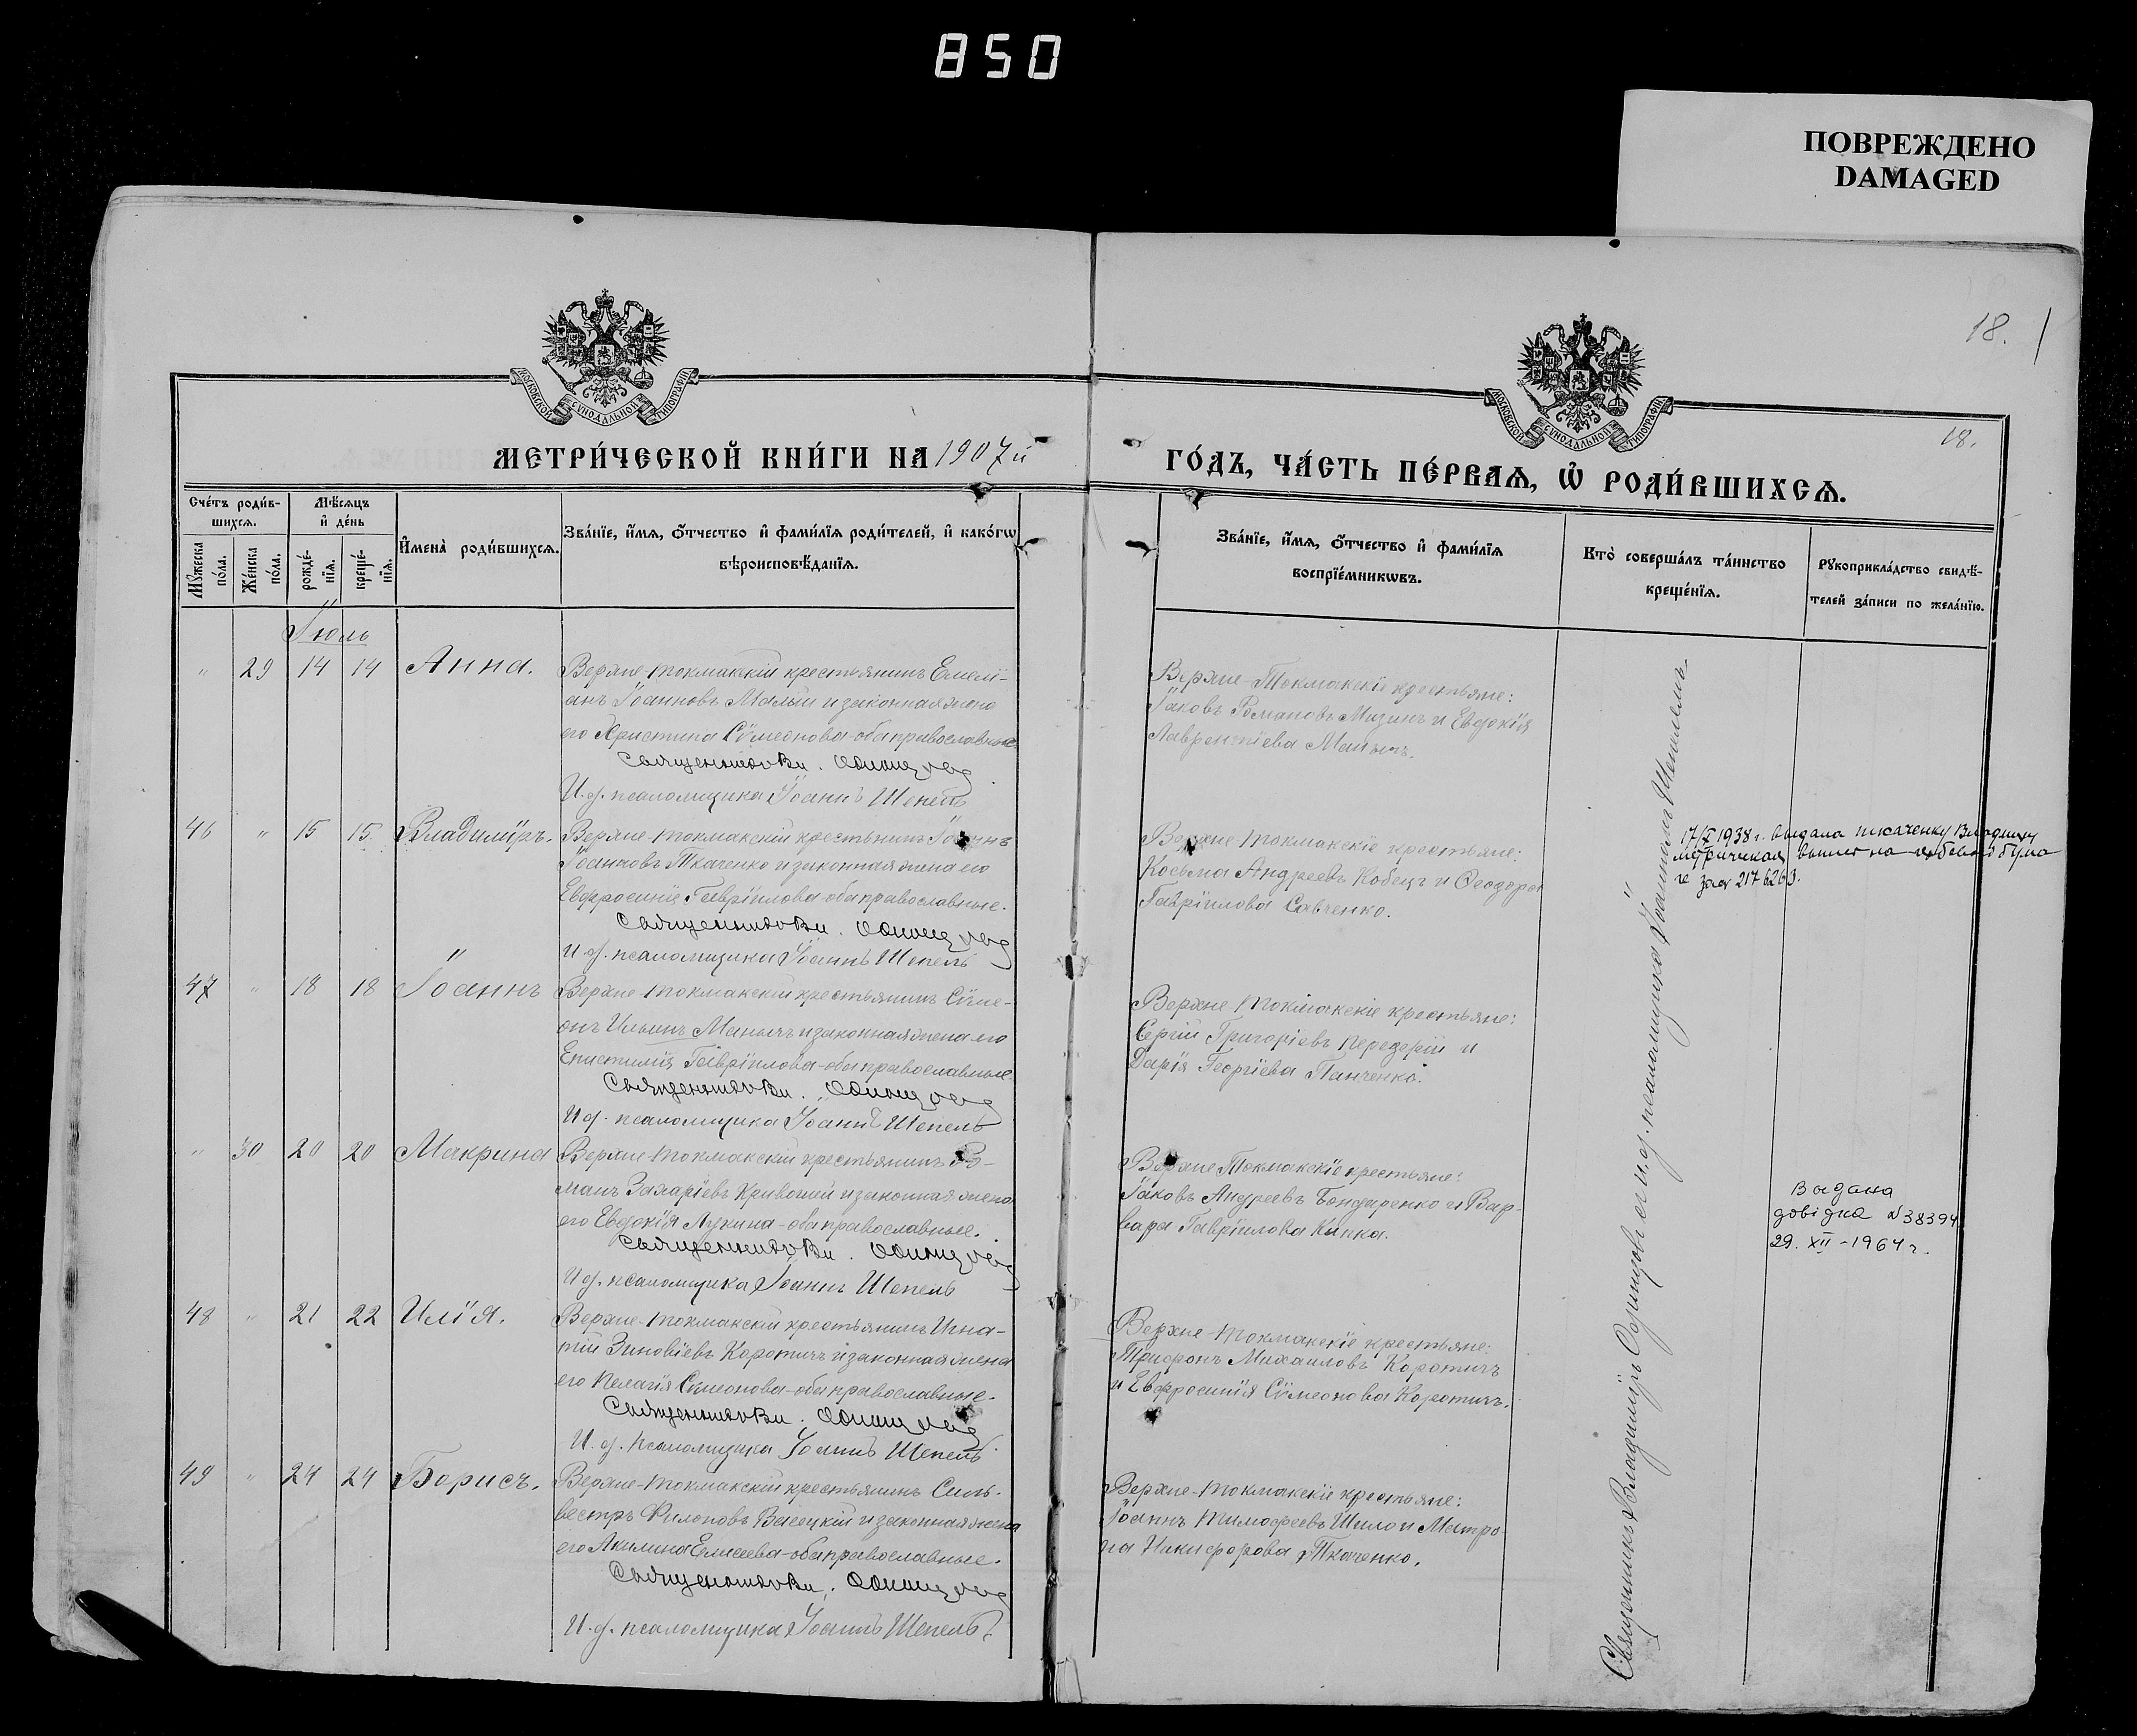 850
ПОВРЕЖДЕНО
DAMAGED
18.
18.
МОСКОВСКОЙ СѴНОДАЛЬНОЙ ТИПОГРАФІИ
МОСКОВСКОЙ СѴНОДАЛЬНОЙ ТИПОГРАФІИ
МЕТРИ́ЧЕСКОЙ КНИ́ГИ НА 1907й
ГО́ДЪ, ЧА́СТЬ ПЕ́РВАѦ, Ѽ РОДИ́ВШИХСѦ.
Сче́тъ роди́в-
шихсѧ.
Мѣ́сѧцъ
и҆ де́нь
Мꙋ́жеска по́ла.
Же́нска по́ла.
рожде́-
нїѧ.
креще́-
нїѧ.
И҆мена̀ роди́вшихсѧ.
Зва́нїе, и҆́мѧ, ѻ҆́тчество и҆ фами́лїѧ роди́телей, и҆ како́гѡ
вѣроисповѣ́данїѧ.
Зва́нїе, и҆́мѧ, ѻ҆́тчество и҆ фами́лїѧ
воспрїе́мникѡвъ.
Кто̀ соверша́лъ та́инство
креще́нїѧ.
Рꙋкоприкла́дство свидѣ́-
телей за́писи по жела́нїю.
Іюль
" 29 14 14 Анна.
Верхне-Токмакскій крестьянинъ Емелі-
анъ Іоанновъ Малый и законная жена
его Христина Сѵмеонова-оба православные
И. д. псаломщика Іоаннъ Шепель
Верхне-Токмакскіе крестьяне:
Іаковъ Романовъ Мизинъ и Евдокія
Лаврентіева Манычъ.
46 " 15 15 Владиміръ.
Верхне-Токмакскій крестьянинъ Іоаннъ
Іоанновъ Ткаченко и законная жена его
Евфросинія Гавріилова-оба православные.
И. д. псаломщика Іоаннъ Шепель
Верхне Токмакскіе крестьяне:
Косьма Андреевъ Кобецъ и Ѳеодора
Гавріилова Савченко.
17/X 1938 г. выдана Ткаченку Владимиру
47 " 18 18 Іоаннъ
Верхне-Токмакскій крестьянинъ Сѵме-
онъ Ильинъ Манычъ и законная жена его
Епистимія Гавріилова-оба православные.
И. д. псаломщика Іоаннъ Шепель
Верхне Токмакскіе крестьяне:
Сергій Григоріевъ Передерій и
Дарія Георгіева Панченко.
" 30 20 20 Макрина
Верхне-Токмакскій крестьянинъ Ро-
манъ Захаріевъ Кривошей и законная жена
его Евдокія Лукина-оба православные.
И. д. псаломщика Іоаннъ Шепель
Верхне Токмакскіе крестьяне:
Іаковъ Андреевъ Бондаренко и Вар-
вара Гавріилова Кипка.
Видана
довідка N 38394
29. XII - 1964 г.
48 " 21 22 Илія.
Верхне-Токмакскій крестьянинъ Игна-
тій Зиновіевъ Коротичъ и законная жена
его Пелагія Сѵмеонова-оба православные.
И. д. псаломщика Іоаннъ Шепель
Верхне-Токмакскіе крестьяне:
Трифонъ Михаиловъ Коротичъ
и Евфросинія Сѵмеонова Коротичъ.
49 " 24 24 Борисъ.
Верхне-Токмакскій крестьянинъ Силь-
вестръ Филоновъ Васецкій и законная жена
его Акилина Елисеева-оба православные.
И. д. псаломщика Іоаннъ Шепель
Верхне-Токмакскіе крестьяне:
Іоаннъ Тимофеевъ Шило и Матро-
на Никифорова Ткаченко.
Священникъ Владиміръ Одинцовъ съ и. д. псаломщика Іоанномъ Шепелемъ